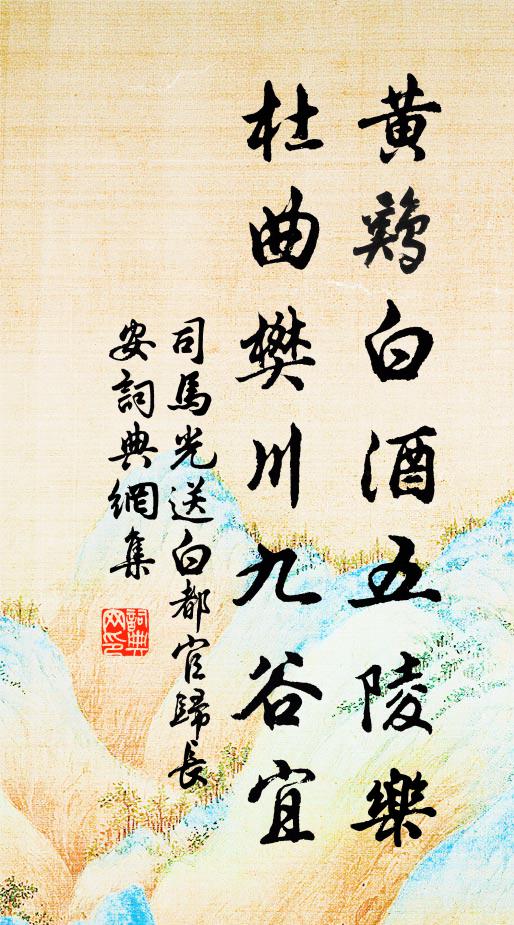 黄鷄白酒五陵樂
杜曲樊川九谷宜
司馬光送白都官歸長
安詞典網集